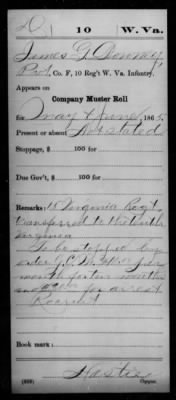 D | 10 | W. Va.
James G. Downey
Pvt., Co. F, 10 Reg't W. Va. Infantry.
Appears on
Company Muster Roll
for May & June, 1865.
Present or absent Not stated
Stoppage, $ 100 for
Due Gov't, $ 100 for
Remarks: 15 Virginia Regt
transferred to the tenth
Virginia
To be stopped by
order G.C.M. per
month for ten months
for arrest
Book mark:
(858) Copyist.